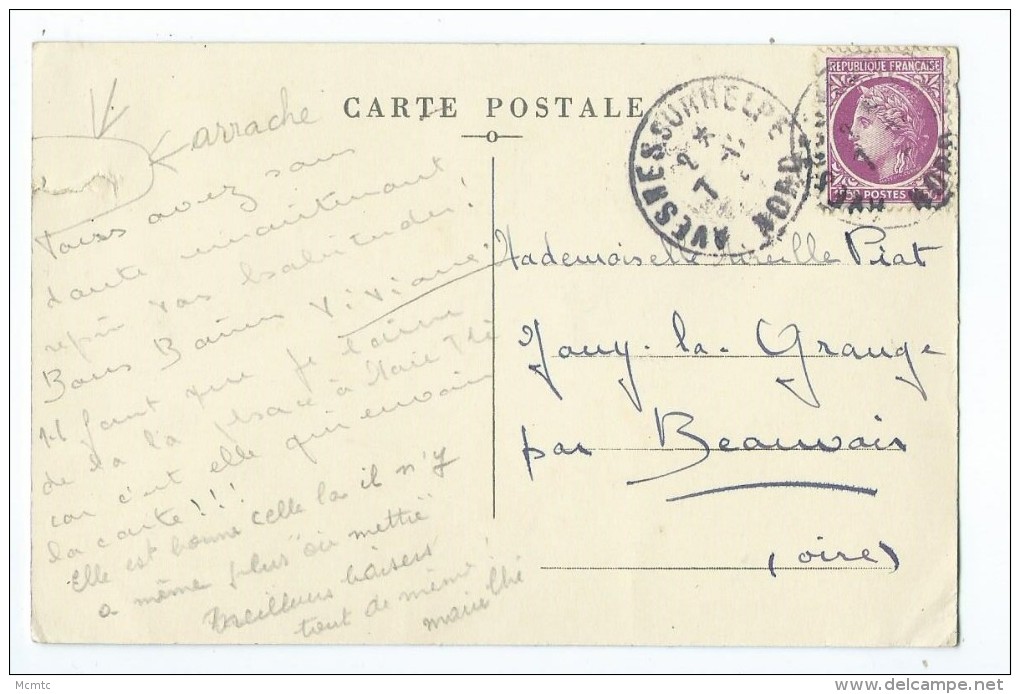 arraché
CARTE POSTALE
Vous avez sans
doute maintenant
repris vos habitudes!
Bons Baisers Viviane
Il faut que je laisse
de la place à Marie Thé
car c'est elle qui envoie
la carte!!!
Elle est bonne celle la il n'y
a même plus "où mettre"
Meilleurs baisers
tout de même!
Marie Thé
AVESNES SUR HELPE
NORD
REPUBLIQUE FRANÇAISE
POSTES
Mademoiselle Mireille Piat
Jouy-la-Grange
par Beauvais
(oise)
Mcmtc
delcampe.net